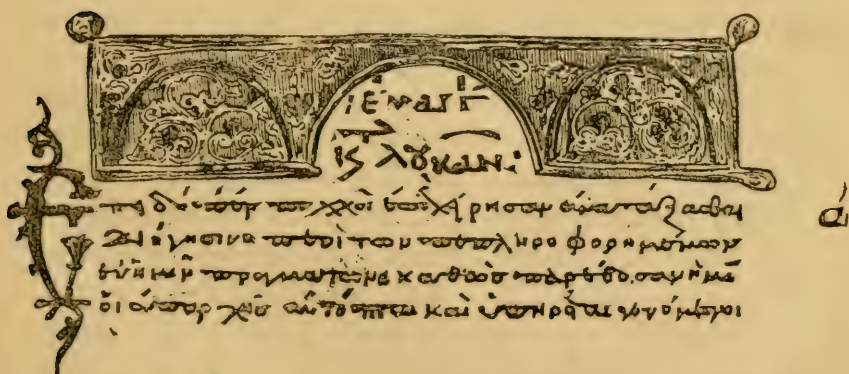 εὐαγγ
λουκαν:
Ἐπειδήπερ πολλοὶ ἐπεχείρησαν ἀνατάξασθαι
διήγησιν περὶ τῶν πεπληροφορημένων
ἐν ἡμῖν πραγμάτων καθὼς παρέδοσαν ἡμῖν
οἱ ἀπαρχῆς αὐτόπται καὶ ὑπηρέται γενόμενοι
ά